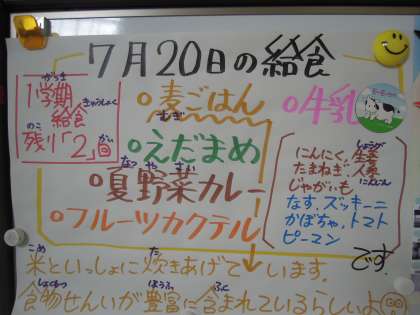 7月20日の給食
がっき
1学期
きゅうしょく
給食
のこ かい
残り「2」回
○麦ごはん
むぎ
○えだまめ
なつ や さい
○夏野菜カレー
○フルーツカクテル
○牛乳
しょうが
にんにく、生姜
たまねぎ、人参
にんじん
じゃがいも
なす、ズッキーニ
かぼちゃ、トマト
ピーマン
です。
こめ た
米といっしょに炊きあげています。
しょくもつ ほうふ ふく
食物せんいが豊富に含まれているらしいよ